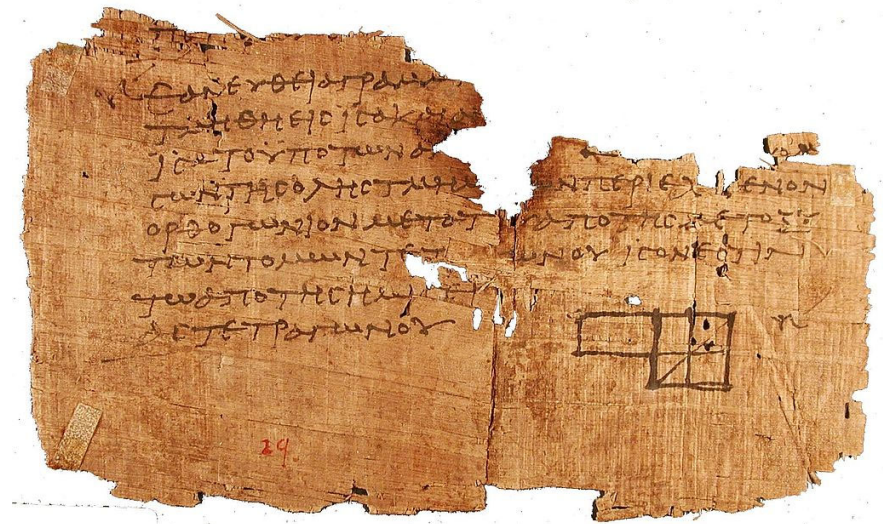 ΕΑΝΕΥΘΕΙΑΓΡΑΜ
ΤΜΗΘΗΕΙϹΙϹΑΚΑΙΑΝ
ΙϹΑΤΟΥΠΟΤΩΝΑΝ
ϹΩΝΤΗϹΟΛΗϹΤΜΗΜ ΩΝΠΕΡΙΕΧ ΕΝΟΝ
ΟΡΘΟΓΩΝΙΟΝΜΕΤΑΤΟΥΑΠΟΤΗϹΜΕΤΟΞΥ
ΤΩΝΤΟΜΩΝΤΕΤ ΩΝΟΥΙϹΟΝΕϹΤΙΝ
ΤΩΑΠΟΤΗϹΗΜΙϹΕΙ
ΑϹΤΕΤΡΑΓΩΝΟΥ
29